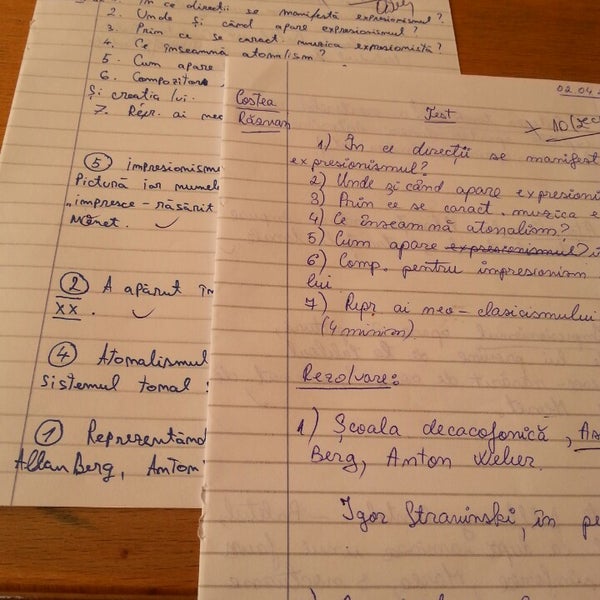 1. În ce direcții se manifestă expresionismul?
2. Unde și când apare expresionismul?
3. Prim ce se caract. muzica expresionistă?
4. Ce înseamnă atonalism?
5. Cum apare
6. Compozitorii
Și creația lui.
7. Repr. ai neo
⑤ impresionismu
Pictură iar numele
„impresce - răsărit
Monet.
② A apărut în
XX.
④ Atonalismul
sistemul tonal
① Reprezentând
Allan Berg, Anton
02.04.
Costea
Răsvan
Test
10 (zec
1) În ce direcții se manifest
expresionismul?
2) Unde și când apare expresioni
3) Prin ce se caract. muzica e
4) Ce înseamnă atonalism?
5) Cum apare expresionismul?
6) Comp. pentru impresionism
lui
7) Repr. ai neo-clasicismului
(4 minim)
Rezolvare:
1) Școala decacofonică, A
Berg, Anton Weber.
Igor Stravinski, în pe